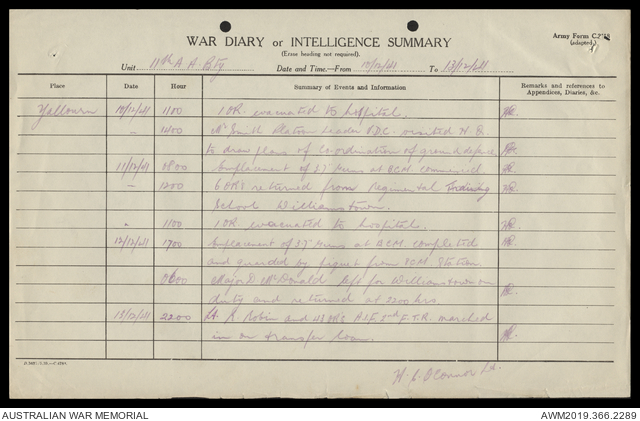 Army Form C.2118
(adapted)
WAR DIARY or INTELLIGENCE SUMMARY
(Erase heading not required).
Unit 11th A.A. Bty Date and Time—From 10/12/41 To 13/12/41
Place Date Hour Summary of Events and Information Remarks and references to Appendices, Diaries, &c.
Yallourn 10/12/41 1100 1 OR evacuated to hospital.
— 1400 Mr Smith Platoon Leader V.D.C. visited H.Q.
to draw plans of coordination of ground defence
11/12/41 0800 Emplacement of 3.7" Guns at commenced.
— 1200 6 ORs returned from Regimental Training
School Williamstown.
" 1100 1 OR evacuated to hospital.
12/12/41 1700 Emplacement of 3.7" Guns at completed
and guarded by piquet from Station
0600 Major D McDonald left for Williamstown on
duty and returned at 2200 hrs.
13/12/41 2200 Lt R Robin and 43 ORs A.I.F. 2nd F.T.R. marched
in on transfer loan.
H. C. O'Connor Lt.
AUSTRALIAN WAR MEMORIAL
AWM2019.366.2289